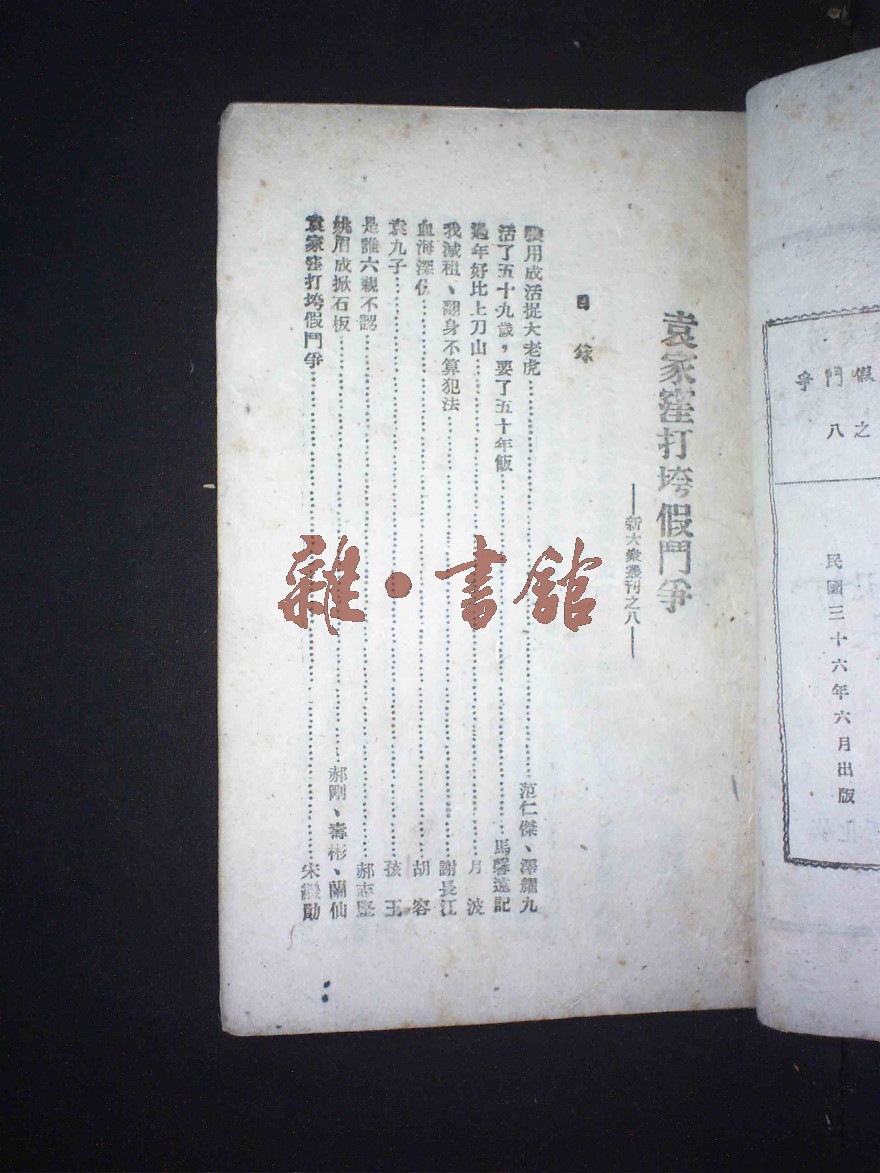 假鬥爭
之八
民國三十六年六月出版
袁家窪打垮假鬥爭
——新大衆叢刊之八——
目錄
用成活捉大老虎……范仁傑、澤耀九
活了五十九歲，要了五十年飯……馬馨遠記
過年好比上刀山……月波
我減租、翻身不算犯法……謝長江
血海深仇……胡容
袁九子……孩王
是誰六親不認……郝志堅
姚眉成掀石板……郝剛、壽彬、蘭仙
袁家窪打垮假鬥爭……宋勛
雜·書館